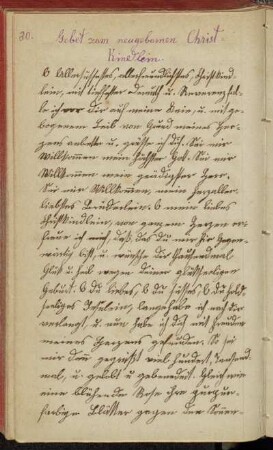 30.
Gebet zum neugebornen Christ-
Kindlein.
O Allersüßestes, allerfreundlichstes, Christkind-
lein, mit tiefster Demuth u. Reverenz fal-
le ich vor dir auf meine Knie, u. mit ge-
bogenem Leib von Grund meines Her-
zens anbette u. grüße ich dich. Sei mir
Willkommen mein höchster Gott. Sei mir
Willkommen mein gnädigster Herr.
Sei mir Willkommen, mein herzaller-
liebstes Brüderlein. O mein liebes
Christkindlein, von ganzem Herzen er-
freue ich mich, daß du mir hier gegen-
wärtig bist, u. wünsche dir tausendmal
Glük u. Heil wegen deiner glükseeligen
Geburt. O du liebes, O du süßes, O du hold-
seeliges Jesulein, lange habe ich nach dir
verlangt, u. nun habe ich dich mit Freuden
meines Herzens gefunden. So sei
mir dan gegrüßt viel hundert, tausend
mal, u. gelobt u. gebenedeit. Gleich wie
eine blühende Rose ihre purpur-
farbigen Blätter gegen der Sonen-